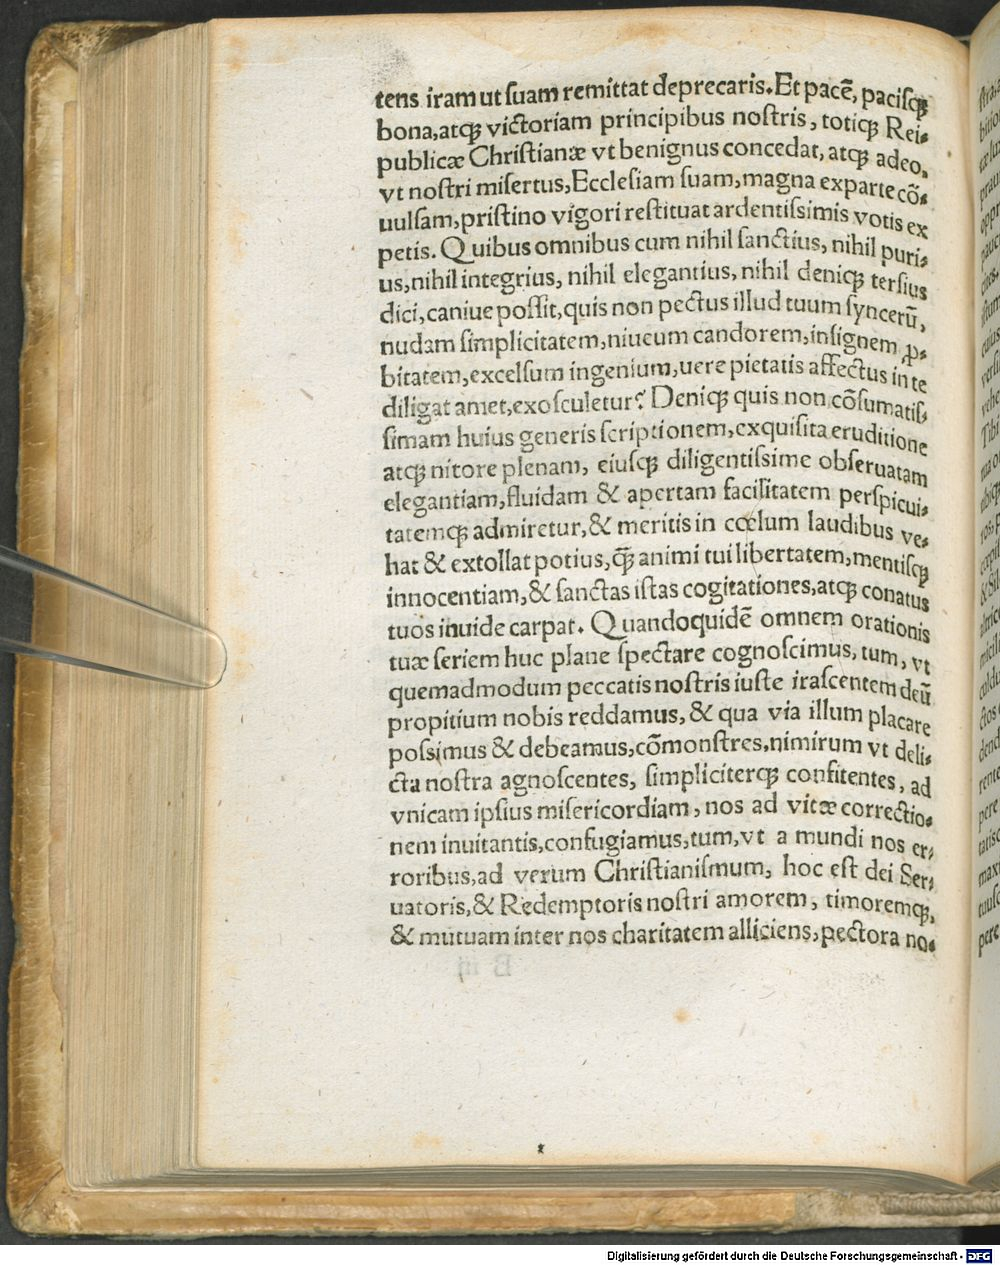 tens iram ut ſuam remittat deprecaris. Et pacē, paciſqꝫ
bona, atqꝫ victoriam principibus noſtris, totiqꝫ Rei⸗
publicæ Chriſtianæ vt benignus concedat, atqꝫ adeo,
vt noſtri miſertus, Eccleſiam ſuam, magna exparte cõ⸗
uulſam, priſtino vigori reſtituat ardentiſsimis votis ex
petis. Quibus omnibus cum nihil ſanctius, nihil puri⸗
us, nihil integrius, nihil elegantius, nihil deniqꝫ terſius
dici, caniue poſſit, quis non pectus illud tuum ſyncerū,
nudam ſimplicitatem, niueum candorem, inſignem ꝓ⸗
bitatem, excelſum ingenium, uere pietatis affectus in te
diligat amet, exoſculetur? Deniqꝫ quis non cõſumatiſ⸗
ſimam huius generis ſcriptionem, exquiſita eruditione
atqꝫ nitore plenam, eiuſqꝫ diligentiſsime obſeruatam
elegantiam, fluidam & apertam facilitatem perſpicui⸗
tatemqꝫ admiretur, & meritis in cœlum laudibus ve⸗
hat & extollat potius, qꝫ̃ animi tui libertatem, mentiſqꝫ
innocentiam, & ſanctas iſtas cogitationes, atqꝫ conatus
tuos inuide carpat. Quandoquidē omnem orationis
tuæ ſeriem huc plane ſpectare cognoſcimus, tum, vt
quemadmodum peccatis noſtris iuſte iraſcentem deū
propitium nobis reddamus, & qua via illum placare
poſsimus & debeamus, cõmonſtres, nimirum vt deli⸗
cta noſtra agnoſcentes, ſimpliciterqꝫ confitentes, ad
vnicam ipſius miſericordiam, nos ad vitæ correctio⸗
nem inuitantis, confugiamus, tum, vt a mundi nos er⸗
roribus, ad verum Chriſtianiſmum, hoc eſt dei Ser⸗
uatoris, & Redemptoris noſtri amorem, timoremqꝫ,
& mutuam inter nos charitatem alliciens, pectora no⸗
Digitalisierung gefördert durch die Deutsche Forschungsgemeinschaft - DFG